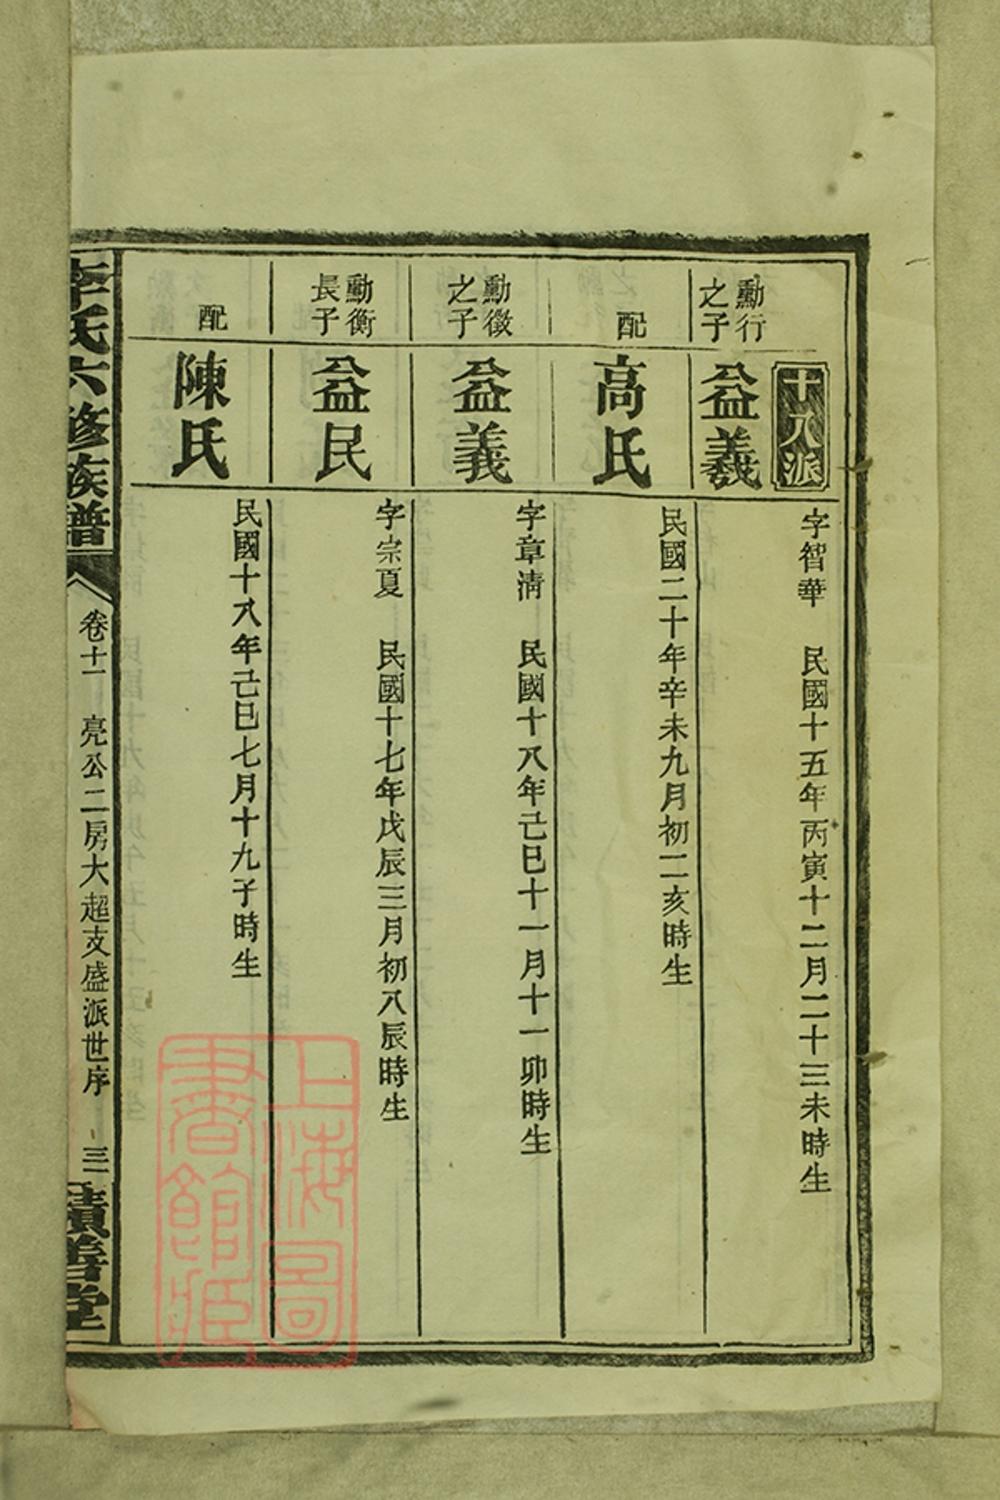 十八派
勳行之子
益羲
字智華 民國十五年丙寅十二月二十三未時生
配
高氏
民國二十年辛未九月初二亥時生
勳徵之子
益義
字章清 民國十八年己巳十一月十一卯時生
勳衡長子
益民
字宗夏 民國十七年戊辰三月初八辰時生
配
陳氏
民國十八年己巳七月十九子時生
李氏六修族譜
卷十一 亮公二房大超支盛派世序 三一
積善堂
上海圖書館藏